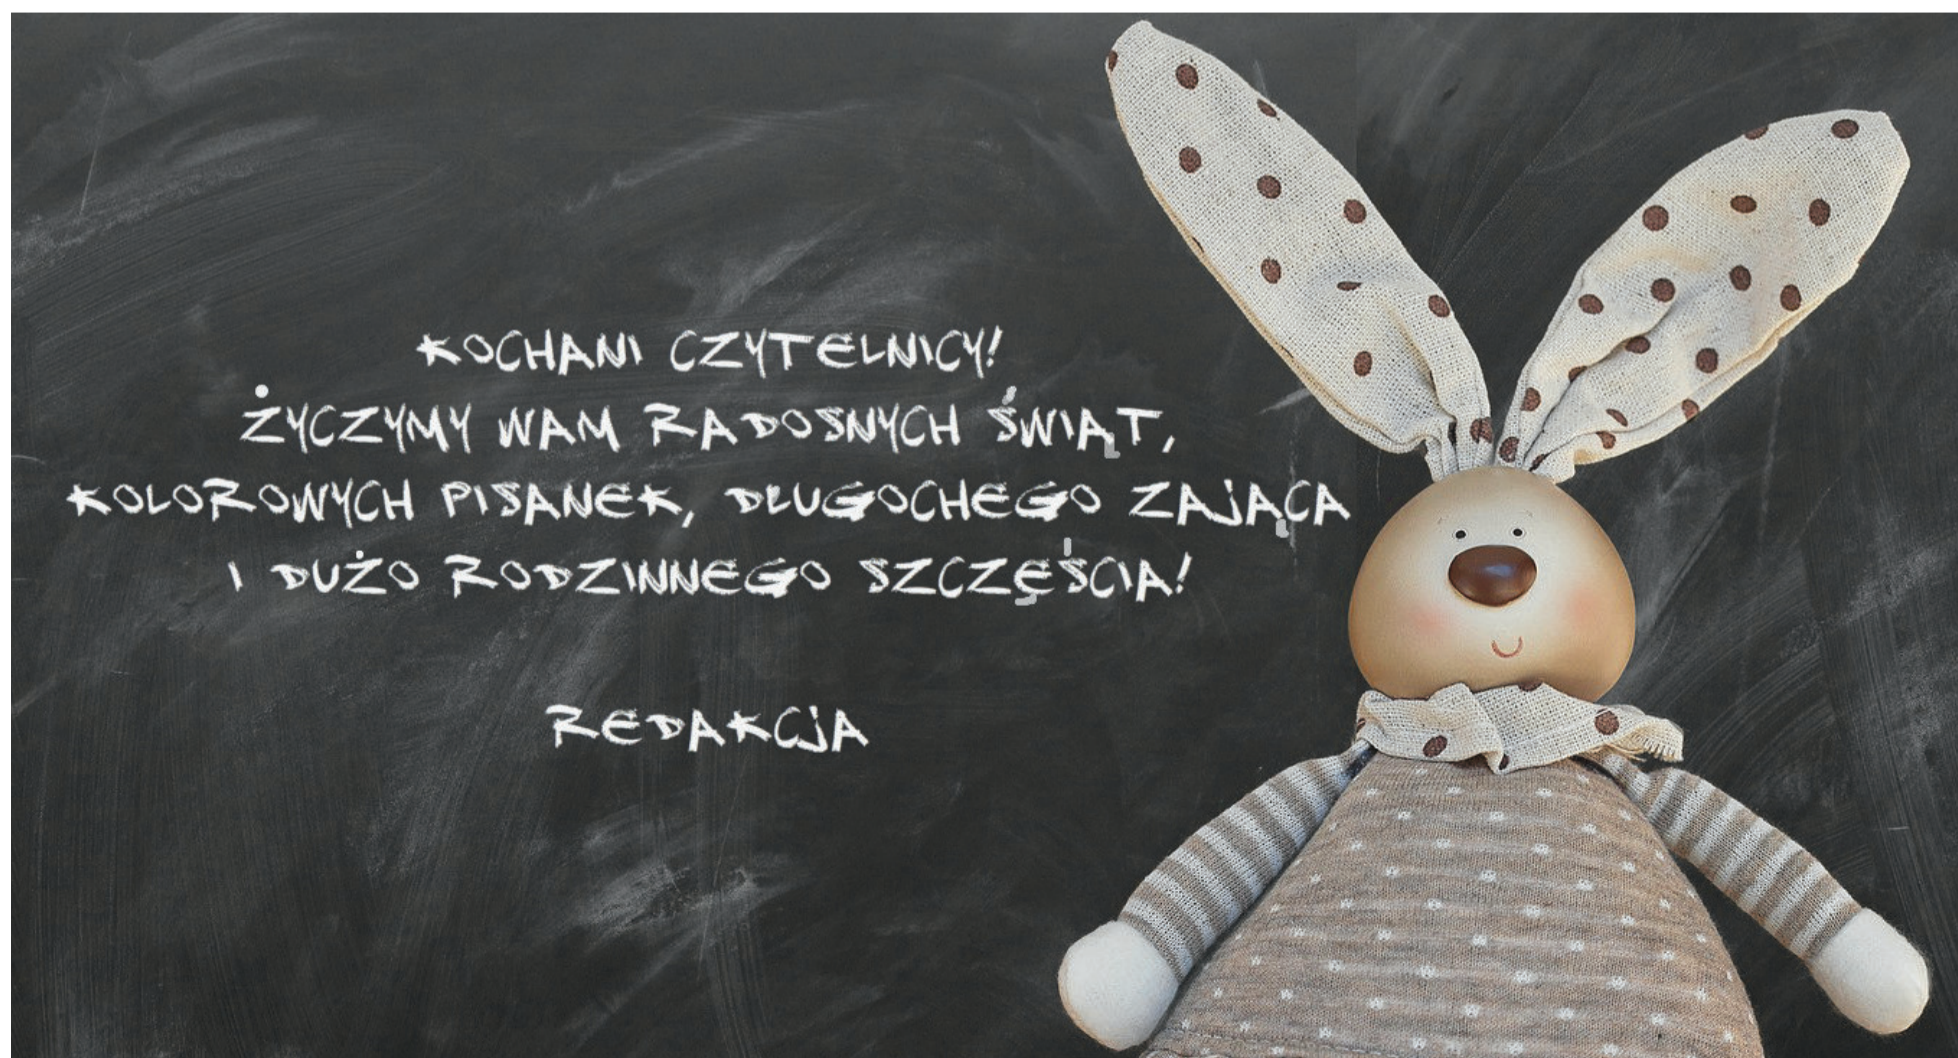 KOCHANI CZYTELNICY!
ŻYCZYMY WAM RADOSNYCH ŚWIĄT,
KOLOROWYCH PISANEK, DŁUGOCHEGO ZAJĄCA
I DUŻO RODZINNEGO SZCZĘŚCIA!
REDAKCJA